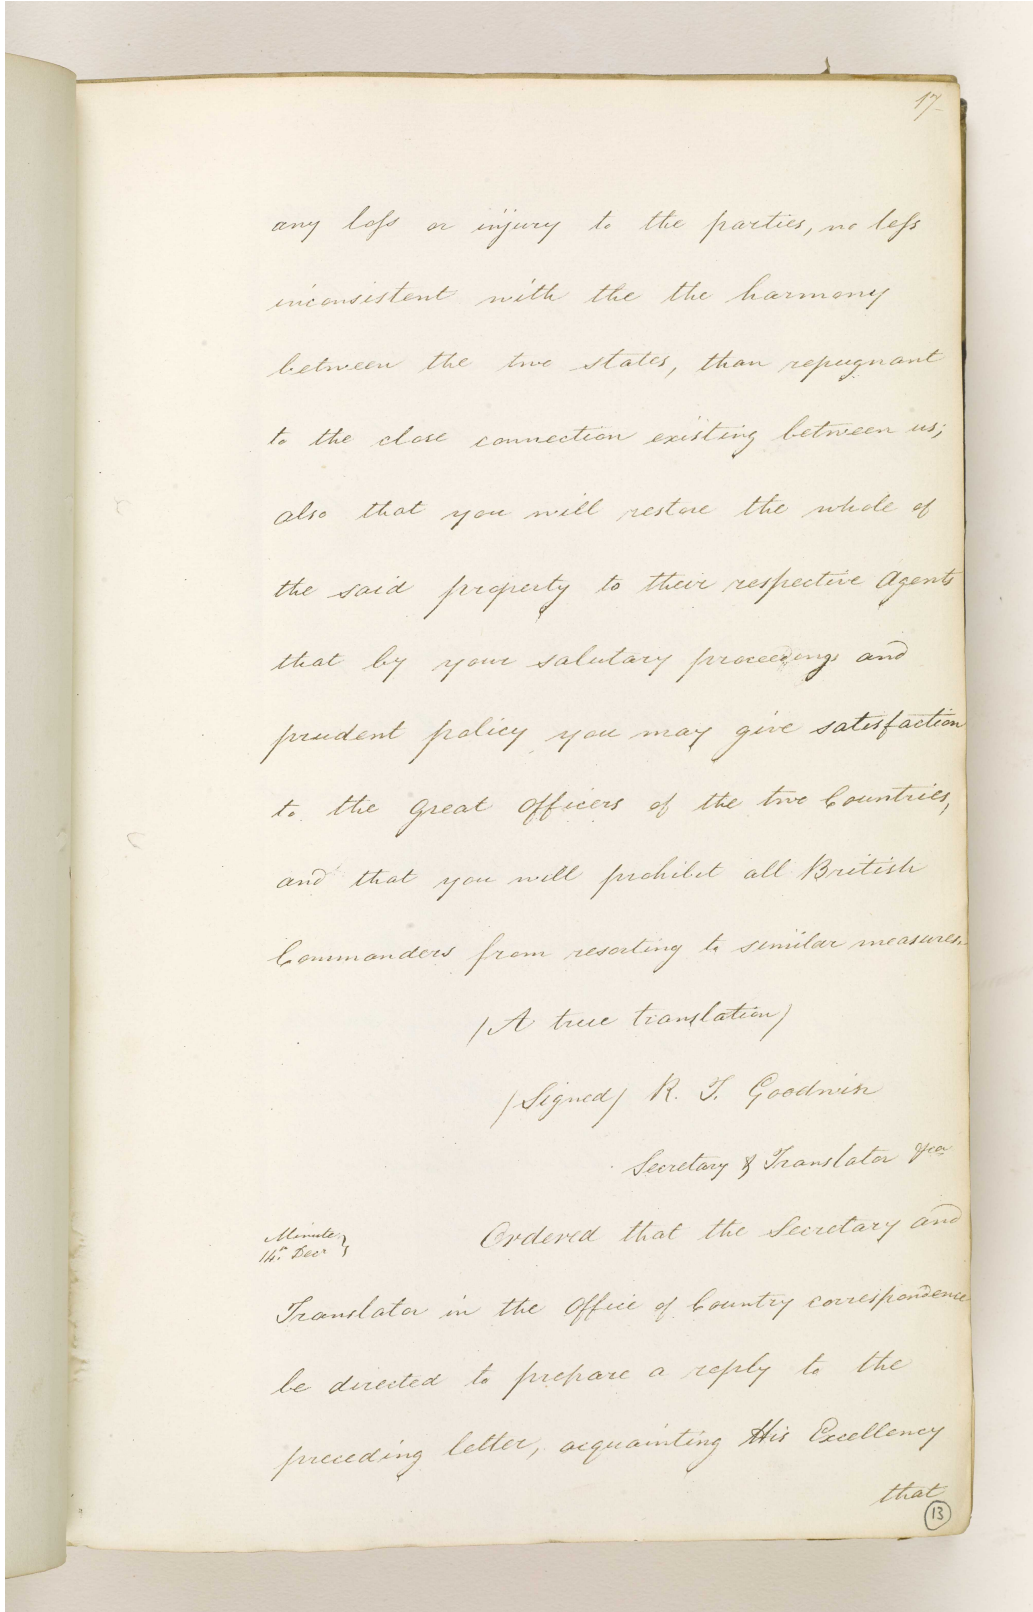 17
any loss or injury to the parties, no less
inconsistent with the the harmony
between the two states, than repugnant
to the close connection existing between us;
also that you will restore the whole of
the said property to their respective Agents
that by your salutary proceedings and
prudent policy you may give satisfaction
to the great officers of the two Countries,
and that you will prohibit all British
Commanders from resorting to similar measures.
(A true translation)
(Signed) R. T. Goodwin
Secretary & Translator
Minute
14th Decr
Ordered that the Secretary and
Translator in the Office of Country correspondence
be directed to prepare a reply to the
preceding letter, acquainting His Excellency
that
13